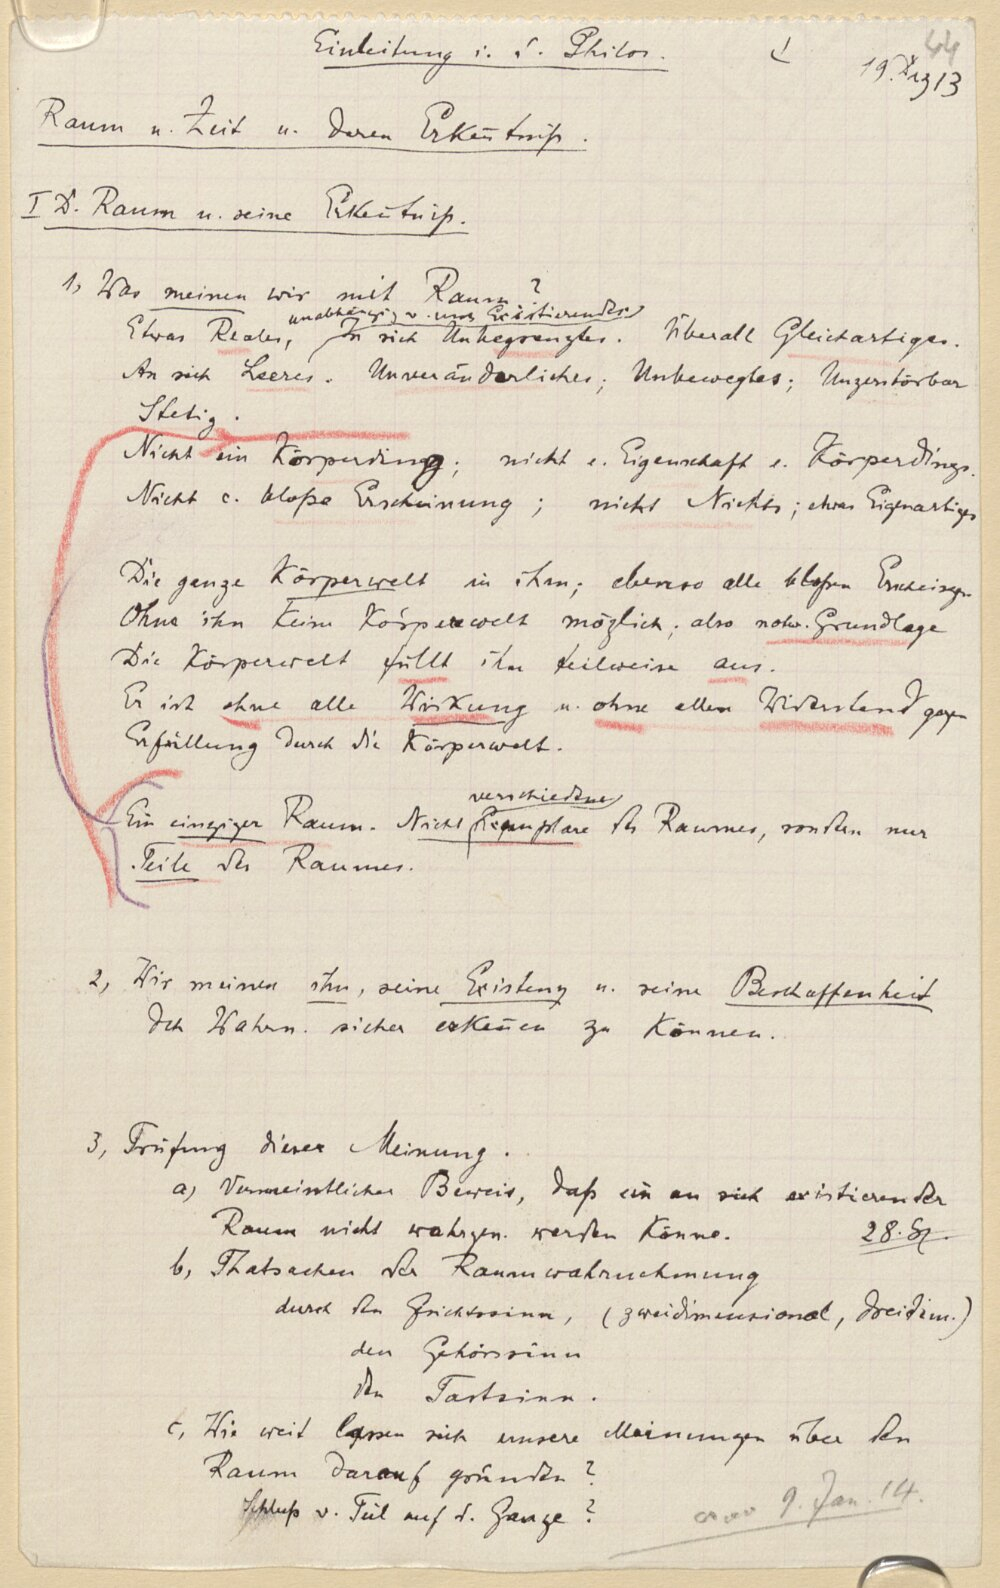 Einleitung i. d. Philos.
44
19. Dez 13
Raum u. Zeit u. deren Erkeñtniß.
I D. Raum u. seine Erkeñtniß.
1, Was meinen wir mit Raum?
unabhängig v. uns Existierendes
Etwas Reales, An sich Unbegrenztes. Überall Gleichartiges.
An sich Leeres. Unveränderliches; Unbewegtes; Unzerstörbar
Stetig.
Nicht ein Körperding; nicht e. Eigenschaft e. Körperdings.
Nicht e. bloße Erscheinung; nicht Nichts; etwas Eigenartiges
Die ganze Körperwelt in ihm; ebenso alle bloßen Erscheingen
Ohne ihn keine Körperwelt möglich; also notw. Grundlage
Die Körperwelt füllt ihn teilweise aus.
Er ist ohne alle Wirkung u. ohne allen Widerstand gegen
Erfüllung durch die Körperwelt.
verschiedene
Ein einziger Raum. Nicht Exemplare des Raumes, sondern nur
Teile des Raumes.
2, Wir meinen ihn, seine Existenz u. seine Beschaffenheit
dch Wahrn. sicher erkeñen zu können.
3, Prüfung dieser Meinung.
a) Vermeintlicher Beweis, daß ein an sich existierender
Raum nicht wahrgen. werden könne.
b, Thatsachen der Raumwahrnehmung
durch den Gesichtssinn, (zweidimensional, dreidim.)
den Gehörssinn
den Tastsinn.
c, Wie weit lassen sich unsere Meinungen über den
Raum darauf gründen?
Schluß v. Teil auf d. Ganze?
9. Jan. 14.